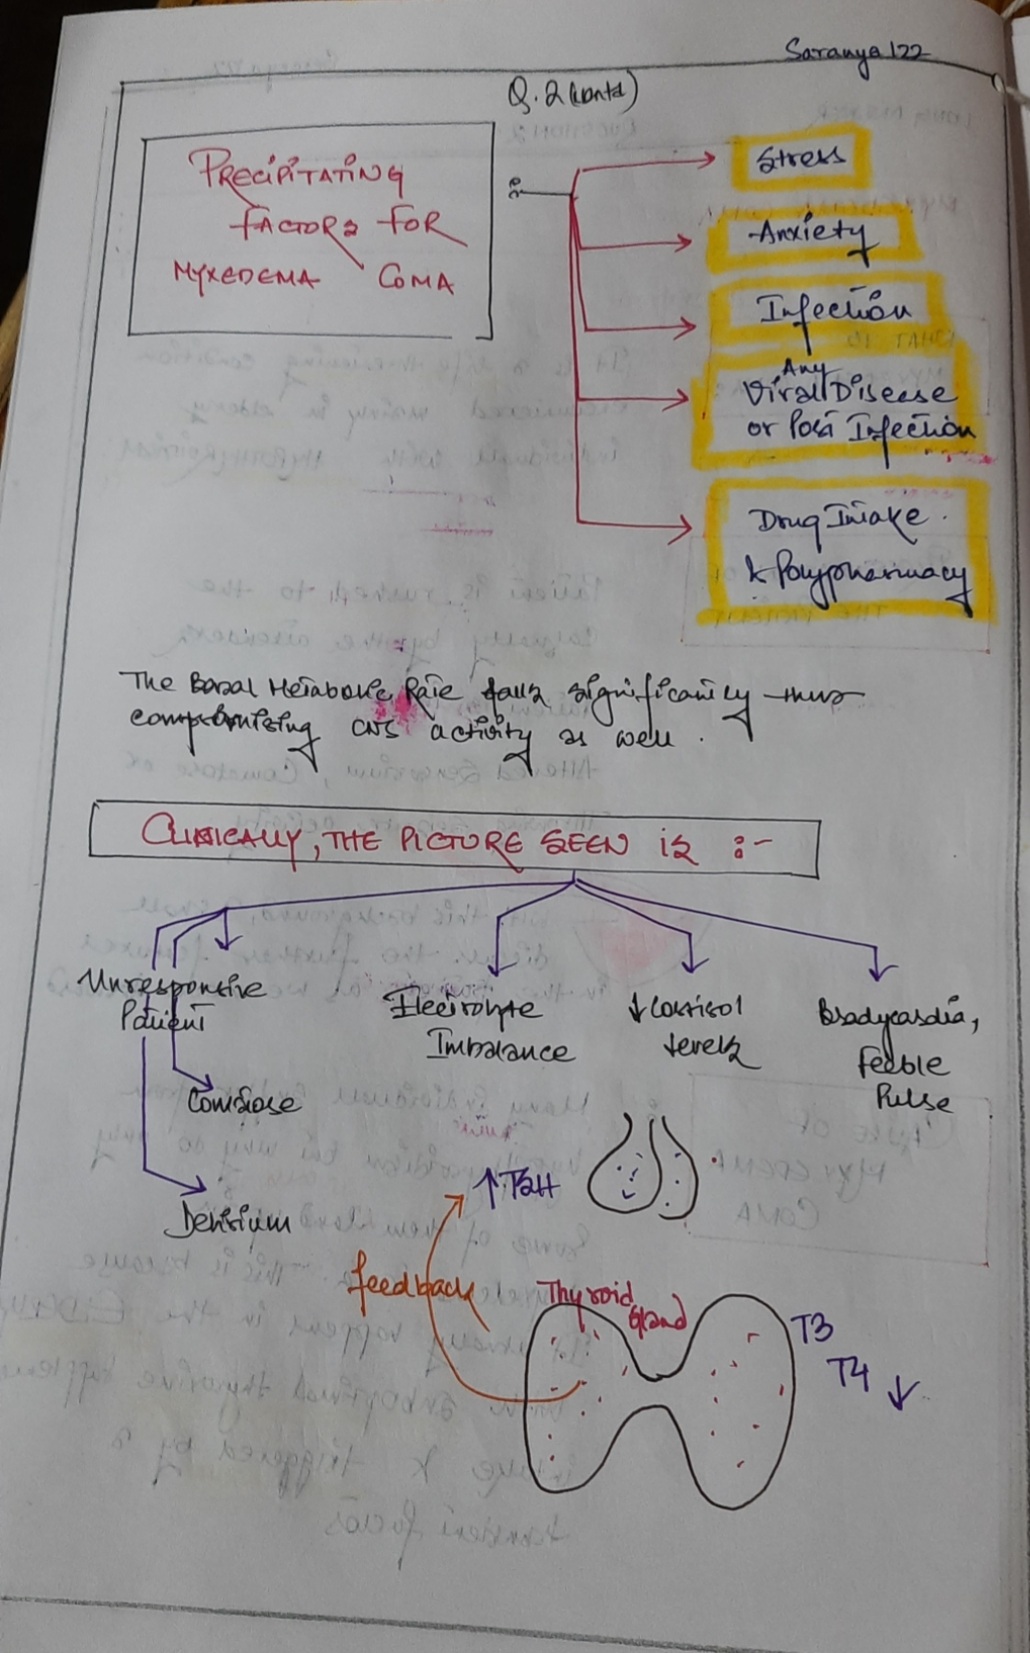 Saranya 122
Q.2 (contd)
PRECIPITATING
FACTORS FOR
MYXEDEMA COMA
:-
Stress
Anxiety
Infection
Any
Viral Disease
or Post Infection
Drug Intake
& Polypharmacy
The Basal Metabolic Rate falls significantly thus
compromising CNS activity as well.
CLINICALLY, THE PICTURE SEEN IS :-
Unresponsive
Patient
Comatose
Delirium
Electrolyte
Imbalance
↓ Cortisol
levels
Bradycardia,
Feeble
Pulse
↑ TSH
feedback
Thyroid
Gland
T3
T4 ↓